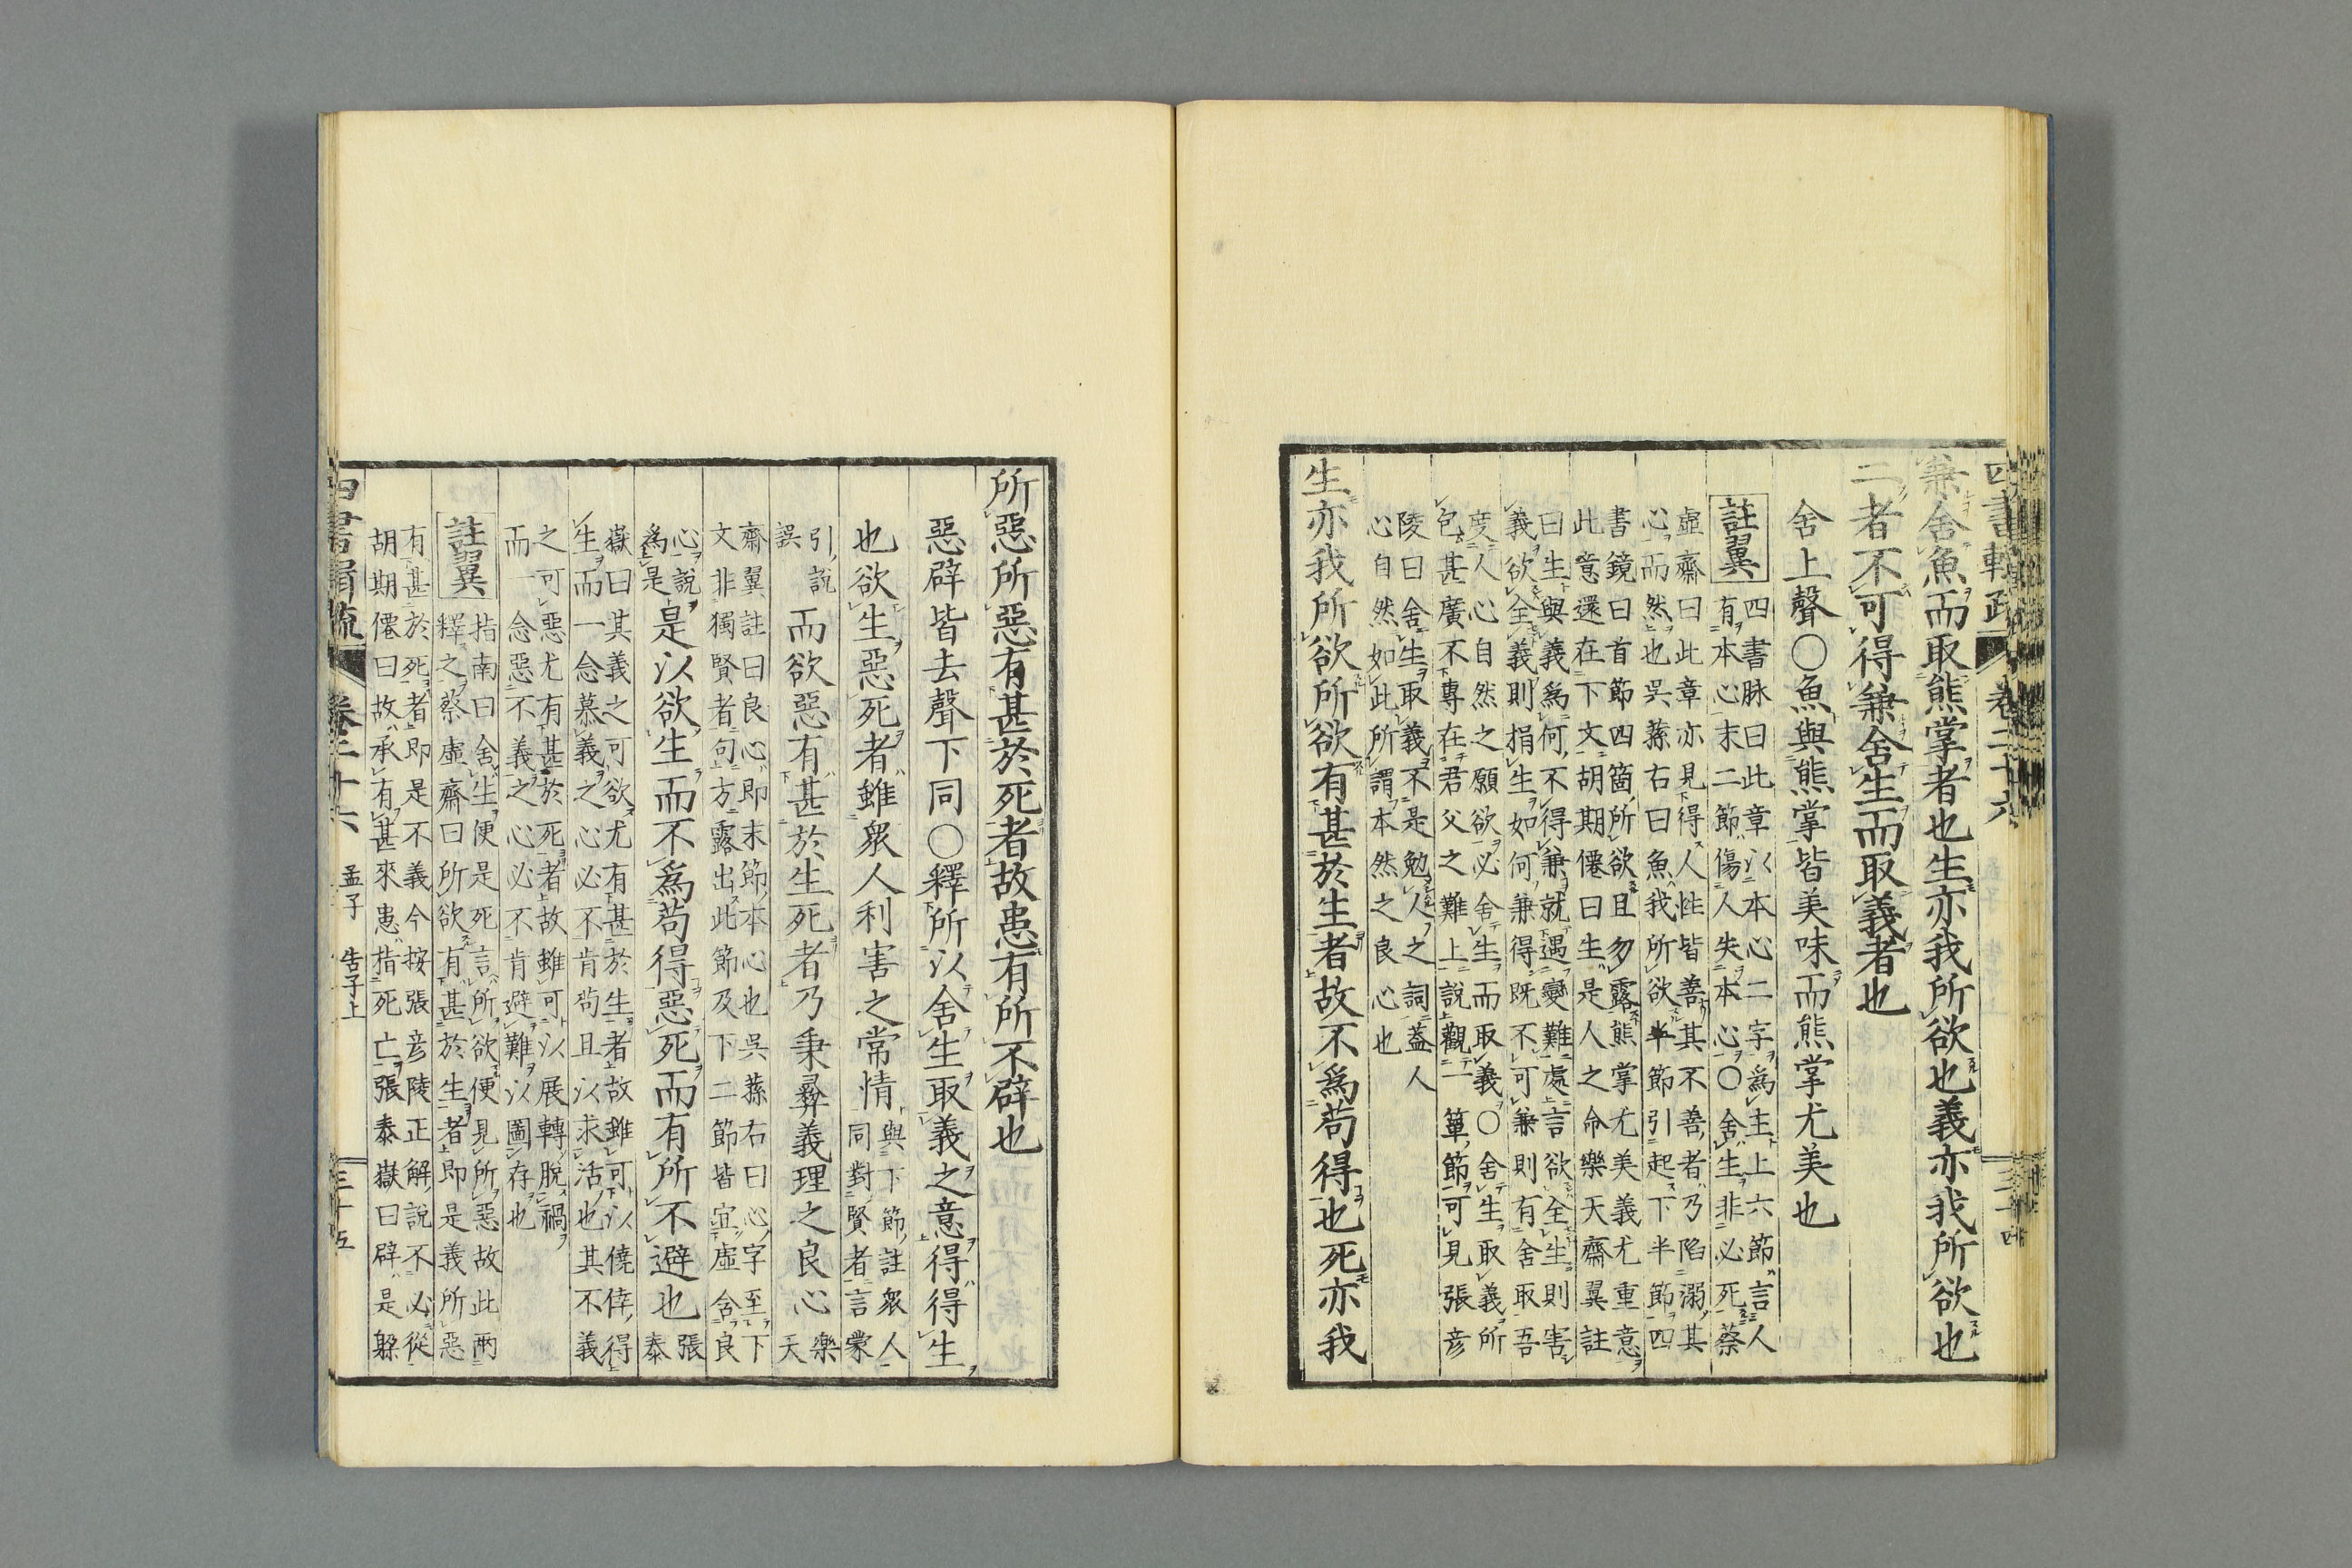 兼舍魚而取熊掌者也生亦我所欲也義亦我所欲也
二者不可得兼舍生而取義者也
舍上聲○魚與熊掌皆美味而熊掌尤美也
註翼
四書脉曰此章以本心二字爲主上六節言人
有本心末二節傷人失本心○舍生非必死蔡
虛齋曰此章亦見得人性皆善其不善者乃陷溺其
心而然也吳蓀右曰魚我所欲半節引起下半節四
書鏡曰首節四箇所欲且勿露熊掌尤美義尤重意
此意還在下文胡期僊曰生是人之命樂天齋翼註
曰生與義爲何不得兼就遇變難處言欲全生則害
義欲全義則捐生如何兼得既不可兼則有舍取吾
度人心自然之願欲必舍生而取義○舍生取義所
包甚廣不專在君父之難上說觀一簞節可見張彦
陵曰舍生取義不是勉人之詞蓋人
心自然如此所謂本然之良心也
生亦我所欲所欲有甚於生者故不爲苟得也死亦我
所惡所惡有甚於死者故患有所不辟也
惡辟皆去聲下同○釋所以舍生取義之意得得生
也欲生惡死者雖衆人利害之常情
與下節註衆人
同對賢者言蒙
引說
誤
而欲惡有甚於生死者乃秉彝義理之良心
樂
天
齋翼註曰良心卽末節本心也吳蓀右曰心字至下
文非獨賢者句方露出此節及下二節皆宜虛含良
心說
爲是
是以欲生而不爲苟得惡死而有所不避也
張
泰
嶽曰其義之可欲尤有甚於生者故雖可以僥倖得
生而一念慕義之心必不肯苟且以求活也其不義
之可惡尤有甚於死者故雖可以展轉脫禍
而一念惡不義之心必不肯避難以圖存也
註翼
指南曰舍生便是死言所欲便見所惡故此兩
釋之蔡虛齋曰所欲有甚於生者即是義所惡
有甚於死者即是不義今按張彦陵正解說不必從
胡期僊曰故承有甚來患指死亡張泰嶽曰辟是躱
卷二十六
孟子 告子上
三十五